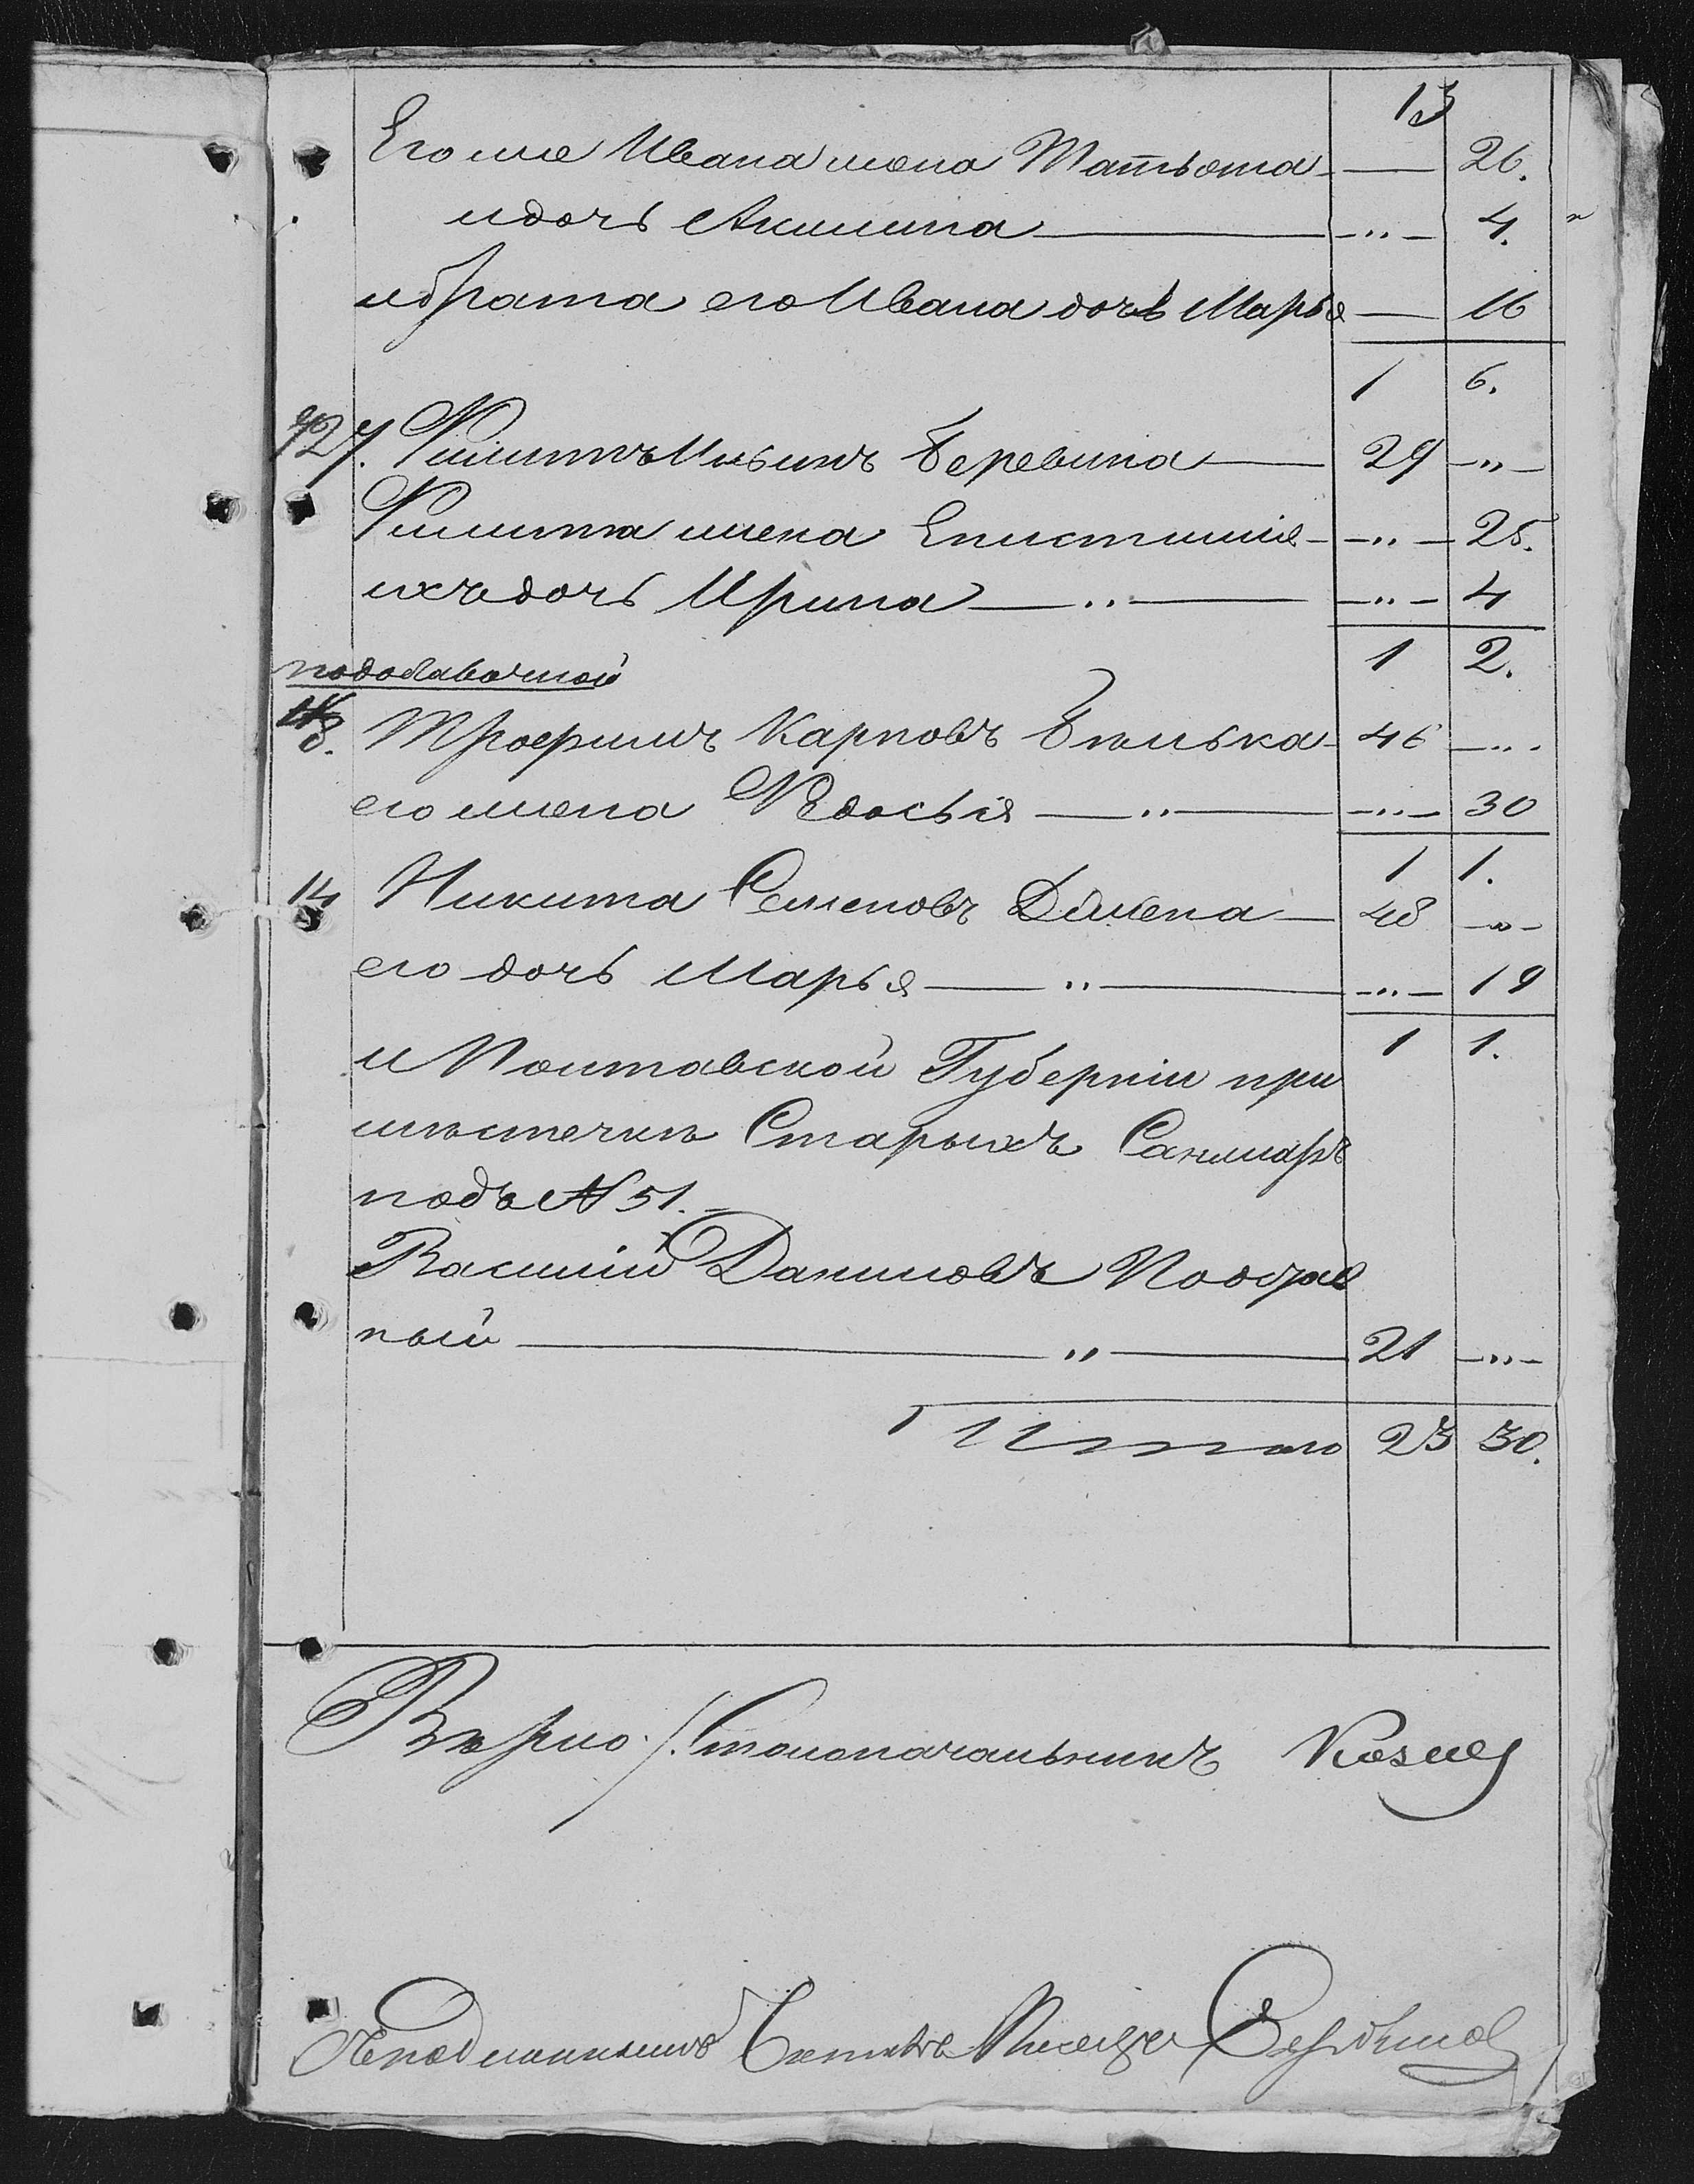 13
Его же Ивана жена Татьяна — 26.
и дочь Акилина — „ — 4.
и брата его Ивана дочь Марья — 16
1 6.
427. Филиппъ Ильинъ Беревина — 29 — „ —
Филиппа жена Епистимия — „ — 25.
ихъ дочь Ирина — „ — — „ — 4
1 2.
по добавочной
8. Трофимъ Карповъ Бѣлька 46 — „
его жена Ѳедосья — „ — — „ — 30
1 1.
14 Никита Семеновъ — 48 — „ —
его дочь Марья — „ — — „ — 19
1 1.
и Полтавской Губерніи при
мѣстечкѣ Старыхъ Санжаръ
подъ № 51.
Василій Даниловъ
ный — „ — 21 — „ —
Итого 23 30.
Вѣрно: Столоначальникъ
Съ подлиннымъ